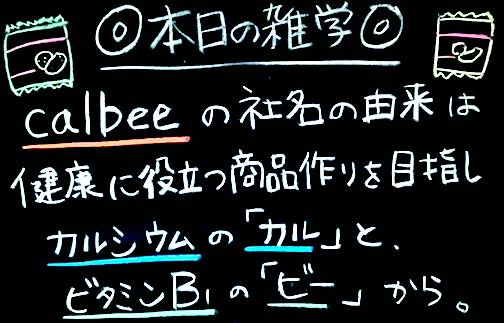 ◎本日の雑学◎
calbeeの社名の由来は
健康に役立つ商品作りを目指し
カルシウムの「カル」と、
ビタミンB₁の「ビー」から。